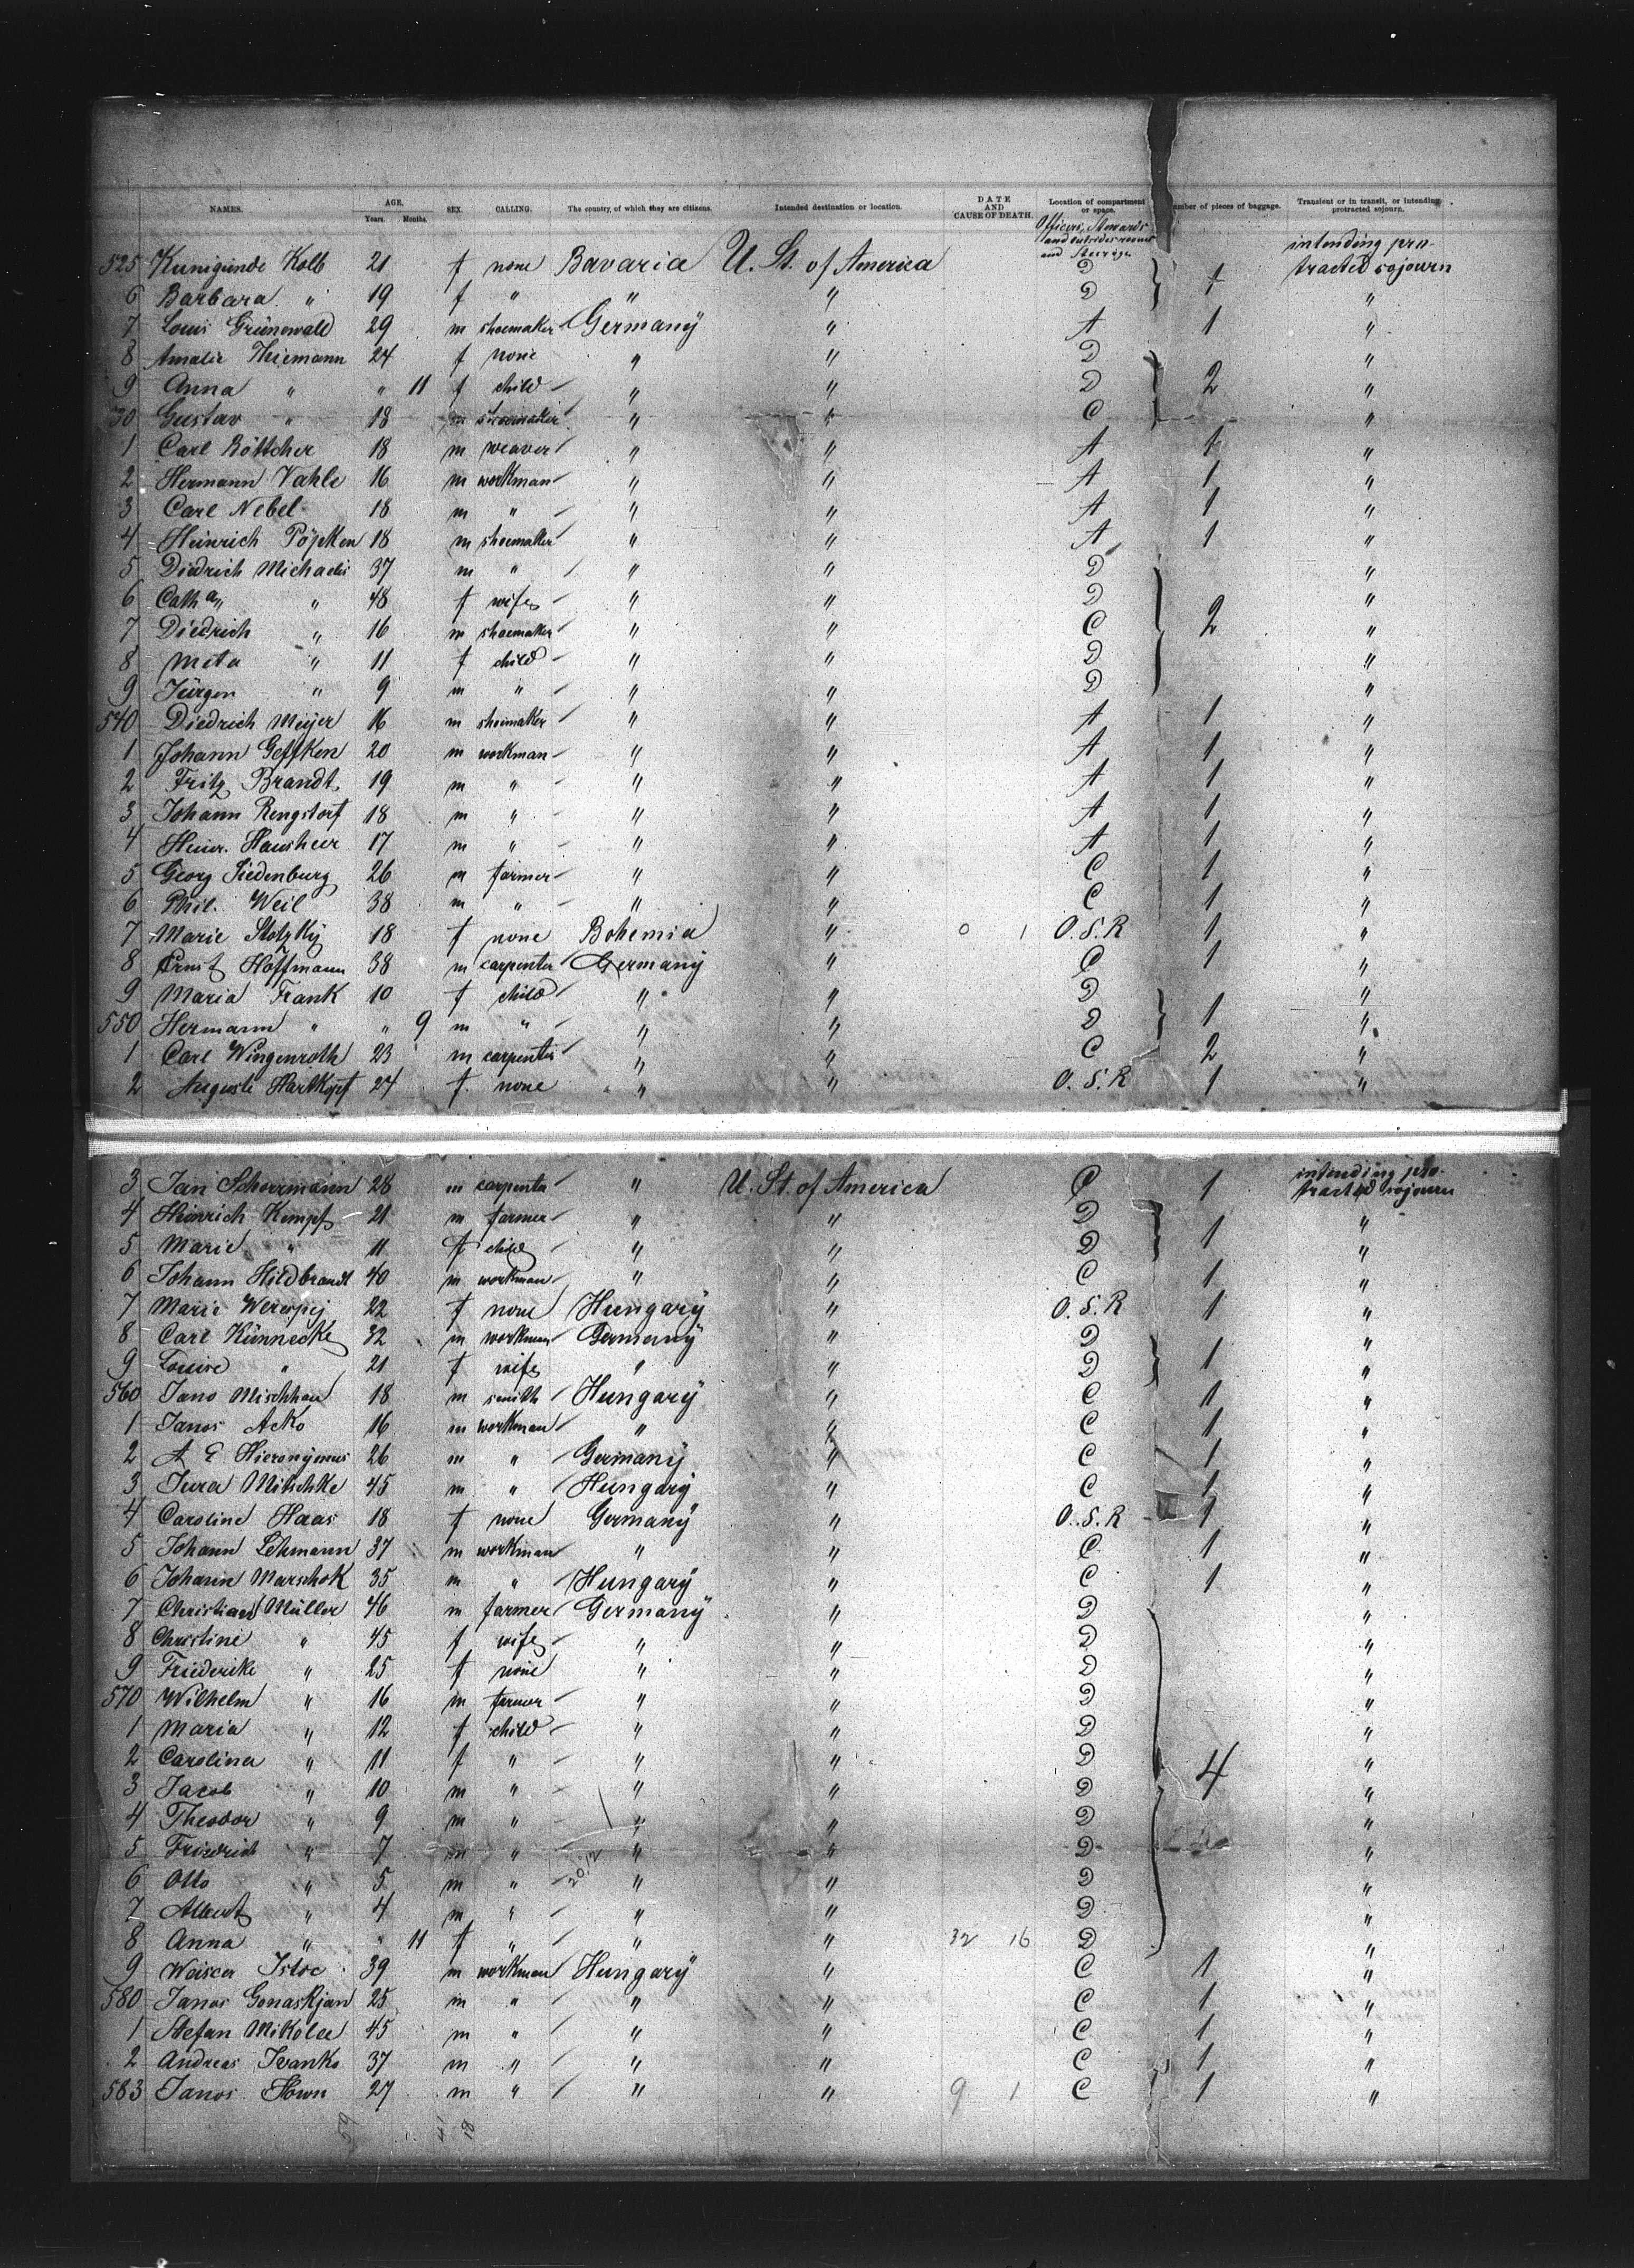 NAMES. AGE. Years. Months. SEX. CALLING. The country, of which they are citizens. Intended destination or location. DATE AND CAUSE OF DEATH. Location of compartment or space. Number of pieces of baggage. Transient or in transit, or intending protracted sojourn.
Officers, Stewards and outsides rooms and Steerage
525 Kunigunde Kolb 21 f none Bavaria U. St. of America D 1 intending protracted sojourn
6 Barbara " 19 f " " " D "
7 Louis Grünewald 29 m shoemaker Germany " A 1 "
8 Amalie Thiemann 24 f none " " D "
9 Anna " " 11 f child " " D 2 "
30 Gustav " 18 m shoemaker " " C "
1 Carl Böttcher 18 m weaver " " A 1 "
2 Hermann Vahle 16 m workman " " A 1 "
3 Carl Nebel 18 m " " " A 1 "
4 Heinrich Pöpken 18 m shoemaker " " A 1 "
5 Diedrich Michaelis 37 m " " " D "
6 Catha " 48 f wife " " D "
7 Diedrich " 16 m shoemaker " " C 2 "
8 Meta " 11 f child " " D "
9 Jürgen " 9 m " " " D "
540 Diedrich Meyer 16 m shoemaker " " A 1 "
1 Johann Geffken 20 m workman " " A 1 "
2 Fritz Brandt 19 m " " " A 1 "
3 Johann Rengstorf 18 m " " " A 1 "
4 Heinr. Hausheer 17 m " " " A 1 "
5 Georg Siedenburg 26 m farmer " " C 1 "
6 Phil. Weil 38 m " " " C 1 "
7 Marie Slotzky 18 f none Bohemia " 0 1 O.S.R 1 "
8 Ernst Hoffmann 38 m carpenter Germany " C 1 "
9 Maria Frank 10 f child " " D "
550 Hermann " " 9 m " " " D 1 "
1 Carl Wingenroth 23 m carpenter " " C 2 "
2 Auguste Hartkopf 24 f none " " O.S.R 1 "
3 Jan Scherrmann 28 m carpenter " U. St. of America C 1 intending protracted sojourn
4 Heinrich Kempf 21 m farmer " " D "
5 Marie " 11 f child " " D 1 "
6 Johann Hildbrandt 40 m workman " " C 1 "
7 Marie 22 f none Hungary " O.S.R 1 "
8 Carl Künnecke 32 m workman Germany " D "
9 Louise " 21 f wife " " D 1 "
560 Jano Mischhau 18 m smith Hungary " C 1 "
1 Janos Acko 16 m workman " " C 1 "
2 A E Hieronymus 26 m " Germany " C 1 "
3 Jura Mitschke 45 m " Hungary " C 1 "
4 Caroline Haas 18 f none Germany " O.S.R 1 "
5 Johann Lehmann 37 m workman " " C 1 "
6 Johann Marschok 35 m " Hungary " C 1 "
7 Christian Müller 46 m farmer Germany " D "
8 Christine " 45 f wife " " D "
9 Friederike " 25 f none " " D "
570 Wilhelm " 16 m farmer " " D "
1 Maria " 12 f child " " D "
2 Carolina " 11 f " " " D "
3 Jacob " 10 m " " " D 4 "
4 Theodor " 9 m " " " D "
5 Friedrich " 7 m " " " D "
6 Otto " 5 m " " " D "
7 Albert " 4 m " " " D "
8 Anna " " 11 f " " " 32 16 D "
9 Weiscer Istoc 39 m workman Hungary " C 1 "
580 Janos Gonaskjan 25 m " " " C 1 "
1 Stefan Mikolee 45 m " " " C 1 "
2 Andreas Ivanko 37 m " " " C 1 "
583 Janos 27 m " " " 9 1 C 1 "
59 41 18